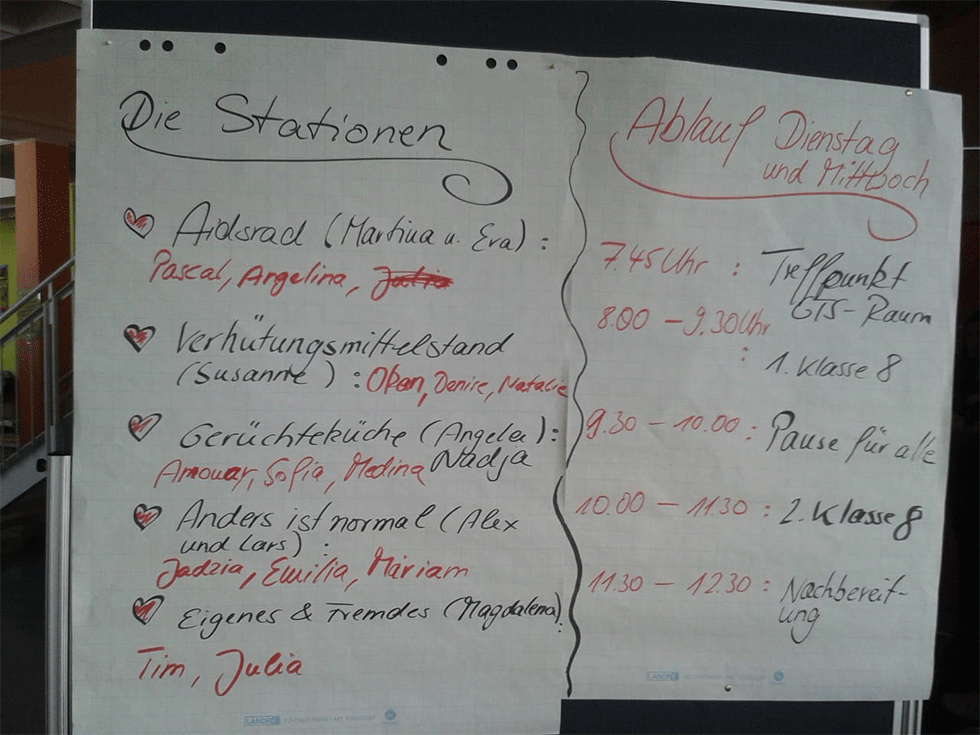 Die Stationen
Aidsrad (Martina u. Eva) :
Pascal, Angelina, Julia
Verhütungsmittelstand
(Susanne) : Okan, Denire, Natalie
Gerüchteküche (Angela) :
Amouar, Sofia, Medina Nadja
Anders ist normal (Alex
und Lars) :
Jadzia, Emilia, Mariam
Eigenes & Fremdes (Magdalena) :
Tim, Julia
LANDRÉ
Ablauf Dienstag
und Mittwoch
7.45 Uhr : Treffpunkt
GTS-Raum
8.00 - 9.30 Uhr
: 1. Klasse 8
9.30 - 10.00 : Pause für alle
10.00 - 11.30 : 2. Klasse 8
11.30 - 12.30 : Nachbereit-
ung
LANDRÉ